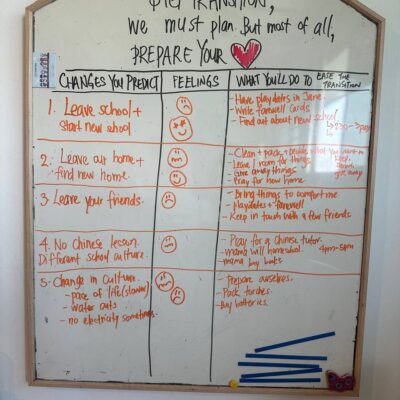 TRANSITION,
We must plan. But most of all,
PREPARE YOUR
CHANGES YOU PREDICT
FEELINGS
WHAT YOU'LL DO TO EASE THE TRANSITION
1. Leave school +
start new school.
- Have playdates in June
- Write farewell cards
- Find out about new school
2. Leave our home +
find new home.
- Clean + pack + decide what you want to
- Leave 1 room for things
- Give away things
- Pray for new home
give away
3. Leave your friends.
- Bring things to comfort me
- Playdates + farewell
- Keep in touch with a few friends
4. No Chinese lesson.
Different school culture.
- Pray for a Chinese tutor.
- mama will homeschool. 4pm-5pm
- mama buy books
5. Change in culture.
- pace of life (slower)
- water cuts
- no electricity sometimes.
- Prepare ourselves.
- Pack torches.
- Buy batteries.